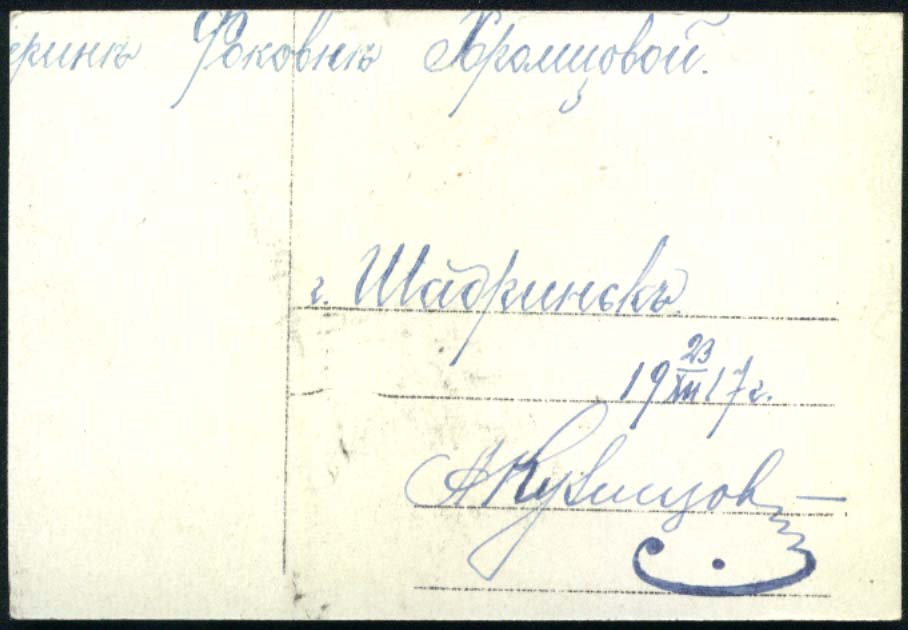 еринѣ Фоковнѣ Хромцовой.
г. Шадринскъ.
19 23/XII 17 г.
АКузнецов